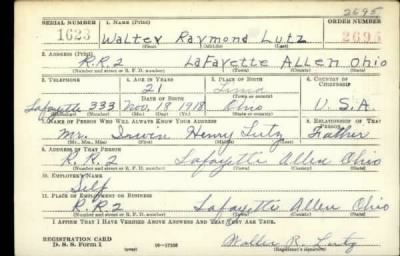 2695
SERIAL NUMBER 1. NAME (Print) ORDER NUMBER
1623 Walter Raymond Lutz 2695
(First) (Middle) (Last)
2. ADDRESS (Print)
R.R.2 LaFayette Allen Ohio
(Number and street or R. F. D. number) (Town) (County) (State)
3. TELEPHONE 4. AGE IN YEARS 5. PLACE OF BIRTH 6. COUNTRY OF CITIZENSHIP
21 Lima
DATE OF BIRTH (Town or county)
Lafayette 333 Nov. 19 1918 Ohio U.S.A.
(Exchange) (Number) (Mo.) (Day) (Yr.) (State or country)
7. NAME OF PERSON WHO WILL ALWAYS KNOW YOUR ADDRESS 8. RELATIONSHIP OF THAT PERSON
Mr. Irwin Henry Lutz Father
(Mr., Mrs., Miss) (First) (Middle) (Last)
9. ADDRESS OF THAT PERSON
R.R.2 Lafayette Allen Ohio
(Number and street or R. F. D. number) (Town) (County) (State)
10. EMPLOYER'S NAME
Self
11. PLACE OF EMPLOYMENT OR BUSINESS
R.R.2 Lafayette Allen Ohio
(Number and street or R. F. D. number) (Town) (County) (State)
I AFFIRM THAT I HAVE VERIFIED ABOVE ANSWERS AND THAT THEY ARE TRUE.
REGISTRATION CARD
D. S. S. Form 1 (over) 16-17105 Walter R. Lutz